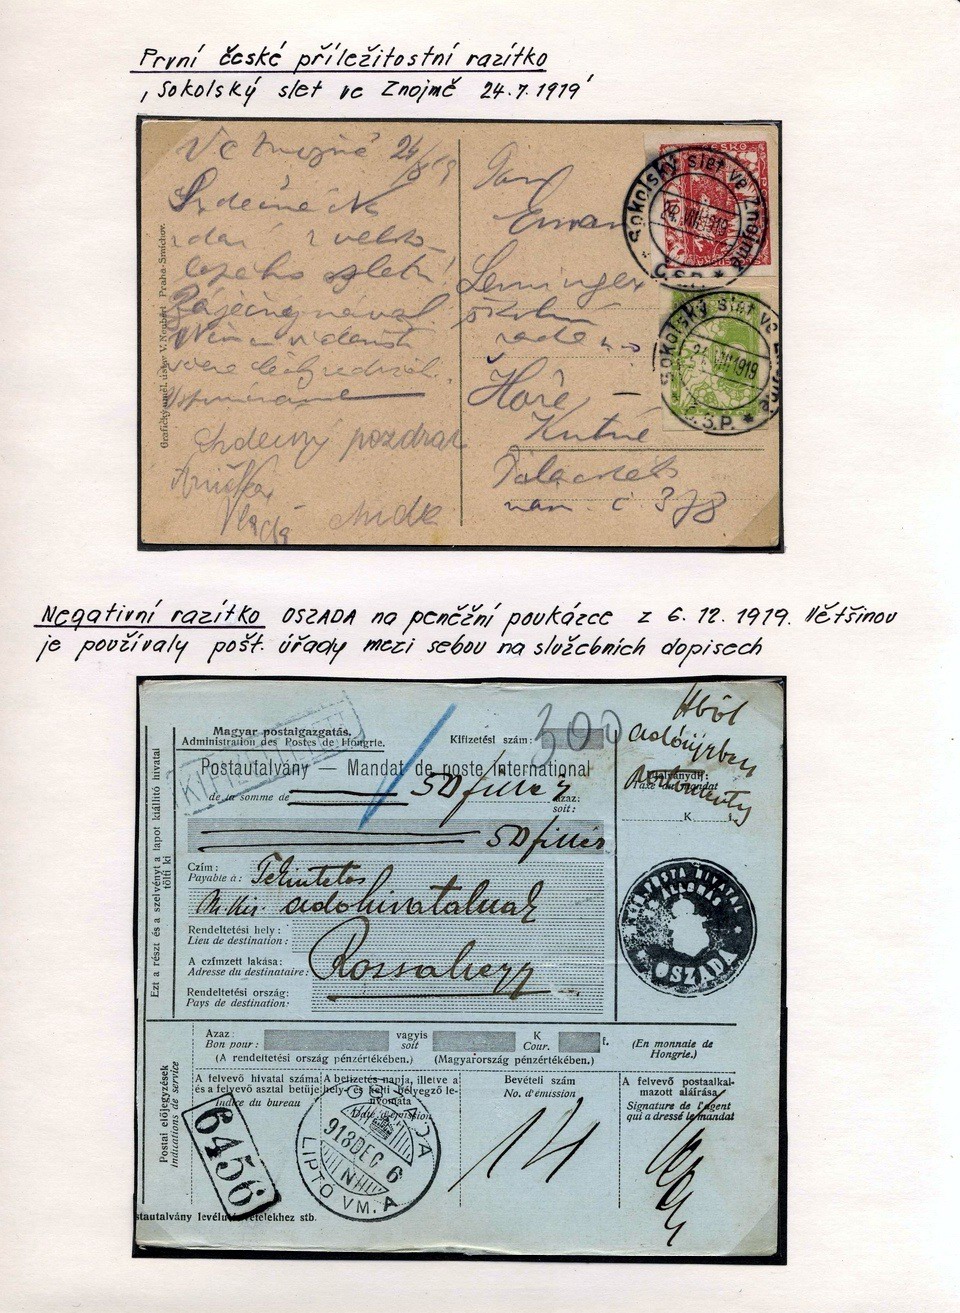 První české příležitostní razítko
'Sokolský slet ve Znojmě 24.7.1919'
Ve Znojmě 24/8 19
Srdečné Na
zdar z vele-
lepého sletu!
Grafický uměl. ústav V. Neubert Praha-Smíchov.
Srdečný pozdrav
Vlasta
Pan
Eman
Horě
Kutné
nám. č. 378
ČESKO
Sokolský slet ve Znojmě
24.VIII.1919
* Č.S.P. *
Sokolský slet ve Znojmě
24.VIII.1919
Č.S.P. *
Negativní razítko OSZADA na peněžní poukázce z 6.12.1919. Většinou
je používaly pošt. úřady mezi sebou na služebních dopisech
Magyar postaigazgatás.
Administration des Postes de Hongrie.
Kifizetési szám:
300
Postautalvány — Mandat de poste international
de la somme de
50 fillér
azaz:
soit:
50 fillér
Ezt a részt és a szelvényt a lapot kiállító hivatal
tölti ki
Czím:
Payable à:
Tekintetes
M. kir. adóhivatalnak
Rendeltetési hely:
Lieu de destination:
A czímzett lakása:
Adresse du destinataire:
Rózsahegy
Rendeltetési ország:
Pays de destination:
Utalványdíj:
Taxe du mandat
K f.
OSZADA
Azaz:
Bon pour:
vagyis
soit
K
Cour.
f.
(En monnaie de
Hongrie.)
(A rendeltetési ország pénzértékében.) (Magyarország pénzértékében.)
Postai előjegyzések
Indications de service
A felvevő hivatal száma
és a felvevő asztal betűje
Indice du bureau
A befizetés napja, illetve a
hely- és kelti bélyegző le-
nyomata
Date d'émission
Bevételi szám
No. d'émission
A felvevő postaalkal-
mazott aláírása
Signature de l'agent
qui a dressé le mandat
6456
OSZADA
918 DEC 6
N
LIPTÓ VM. A
14